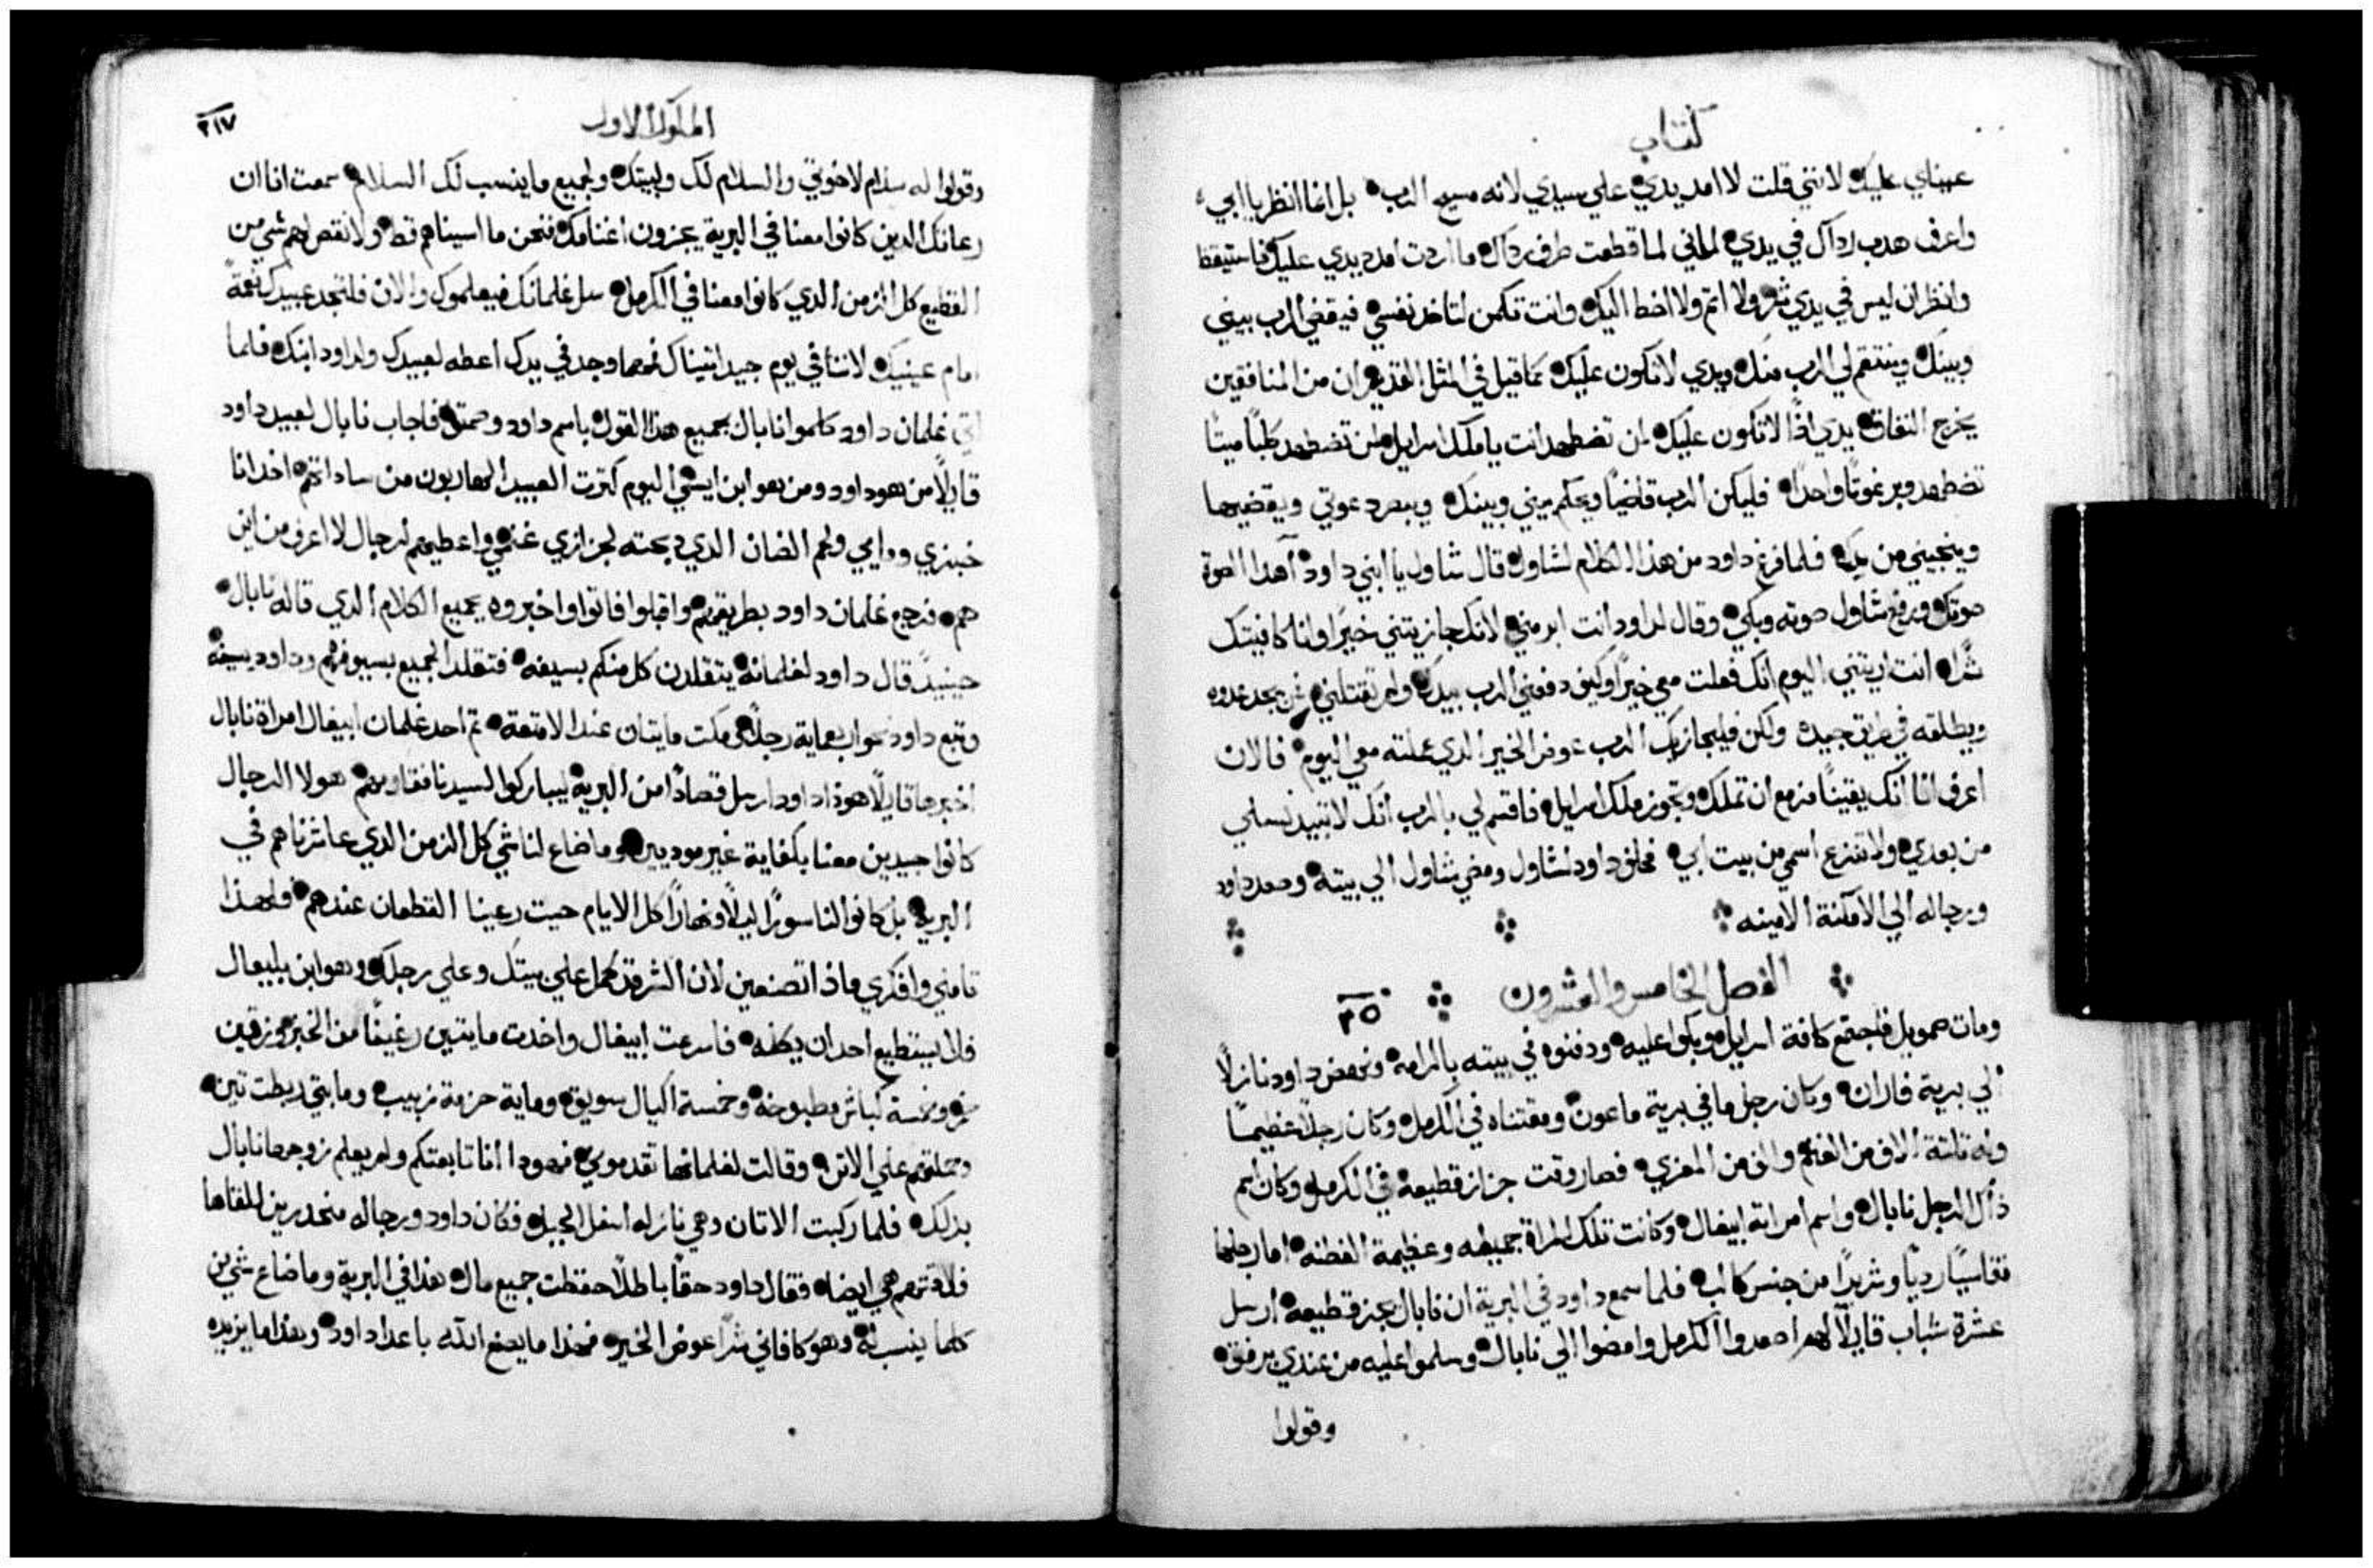 كتاب
عيناي عليك لانني قلت لا امد يدي علي سيدي لانه مسيح الرب بل انما انظر يا ابي
واعرف هدب رداك في يدي لاني لما قطعت طرف رداك ما اردت امدد يدي عليك فاستيقظ
وانظر ان ليس في يدي شر ولا اثم ولا اخطا اليك وانت تكمن لتاخد نفسي فيقضي الرب بيني
وبينك وينتقم لي الرب منك ويدي لا تكون عليك كما قيل في المثل القديم ان من المنافقين
يخرج النفاق يدي اذًا لا تكون عليك لمن تضطهد انت يا ملك اسرايل لمن تضطهد كلبًا ميتًا
تضطهد وبرغوتًا واحدًا فليكن الرب قاضيًا ويحكم بيني وبينك ويبصر دعوتي ويقضيها
وينجيني من يدك فلما فرغ داود من هذا الكلام لشاول قال شاول يا ابني داود أهدا الصوت
صوتك ورفع شاول صوته وبكي وقال لداود انت ابر مني لانك جازيتني خيرًا وانا كافيتك
شرًا انت اريتني اليوم انك فعلت معي خيرًا وكيف دفعني الرب بيدك ولم تقتلني من يجد عدوه
ويطلقه في طريق جيدة ولكن فليجازيك الرب عوض الخير الدي عملته معي اليوم فالان
اعرف انا انك يقينًا مزمع ان تملك وتحوز ملك اسرايل فاقسم لي بالرب انك لا تبيد نسلي
من بعدي ولا تنزع اسمي من بيت ابي فحلف داود لشاول ومضي شاول الي بيته وصعد داود
ورجاله الي الامكنة الامينه
الفصل الخامس والعشرون ٢٥
ومات صمويل فاجتمع كافة اسرايل وبكوا عليه ودفنوه في بيته بالرامه ونهض داود نازلًا
الي برية فاران وكان رجل ما في برية ماعون ومقتناه في الكرمل وكان رجلًا عظيمًا
وله تلتة الاف من الغنم والف من المعزي فصار وقت جزاز قطيعه في الكرمل وكان اسم
ذاك الرجل نابال واسم امراته ابيغال وكانت تلك المراة جميله وعظيمة الفطنه اما رجلها
فقاسيًا رديًا وشريرًا من جنس كالب فلما سمع داود في البرية ان نابال يجز قطيعه ارسل
عشرة شباب قايلًا لهم اصعدوا الكرمل وامضوا الي نابال وسلموا عليه من عندي برفق
وقولوا
الملوك الاول
٢١٧
وقولوا له سلام لاخوتي والسلام لك ولبيتك ولجميع ما ينسب لك السلام سمعت انا ان
رعاتك الدين كانوا معنا في البرية يجزون اغنامك فنحن ما اسيناهم قط ولا نقص لهم شي من
القطيع كل الزمن الدي كانوا معنا في الكرمل سل غلمانك فيعلموك والان فلتجد عبيدك نعمةً
امام عينيك لاننا في يوم جيد اتيناك فمهما وجد في يدك اعطه لعبيدك ولداود ابنك فلما
اتي غلمان داود كلموا نابال بجميع هذا القول باسم داود وصمتوا فاجاب نابال لعبيد داود
قايلًا من هو داود ومن هو ابن ايشي اليوم كترت العبيد الهاربون من ساداتهم اخد انا
خبزي ومايي ولحم الضان الدي دبحته لجزازي غنمي واعطيهم لرجال لا اعرف من اين
هم فرجع غلمان داود بطريقهم واقبلوا فاتوا واخبروه بجميع الكلام الدي قاله نابال
حينيدٍ قال داود لغلمانه يتقلدن كل منكم بسيفه فتقلد الجميع بسيوفهم وداود بسيفه
وتبع داود نحو اربعماية رجلًا ومكت مايتان عند الامتعة ثم احد غلمان ابيغال امراة نابال
اخبرها قايلًا هوذا داود ارسل قصادًا من البرية ليباركوا لسيدنا فقاومهم هولا الرجال
كانوا جيدين معنا بكفاية غير موديين وما ضاع لنا شي كل الزمن الدي عاشرناهم في
البرية بل كانوا لنا سورًا ليلًا ونهارًا كل الايام حيت رعينا القطعان عندهم فلهذا
تامني وافكري ماذا تصنعين لان الشر قد كمل علي بيتك وعلي رجلك وهو ابن بليعال
فلا يستطيع احد ان يكلمه فاسرعت ابيغال واخدت مايتين رغيفًا من الخبز وزقين
خمر وخمسة كباش مطبوخة وخمسة اكيال سويق وماية حزمة زبيب ومايتي ربطت تين
وحملتهم علي الاتن وقالت لغلمانها تقدموني فهودا انا تابعتكم ولم يعلم زوجها نابال
بدلك فلما ركبت الاتان وهي نازله اسفل الجبل فكان داود ورجاله منحدرين للقاها
فلاقتهم هي ايضا فقال داود حقًا باطلًا حفظت جميع مال هذا في البرية وما ضاع شي من
كلما ينسب له وهو كافاني شرًا عوض الخير فهذا ما يصنع الله باعدا داود وهذا ما يزيده